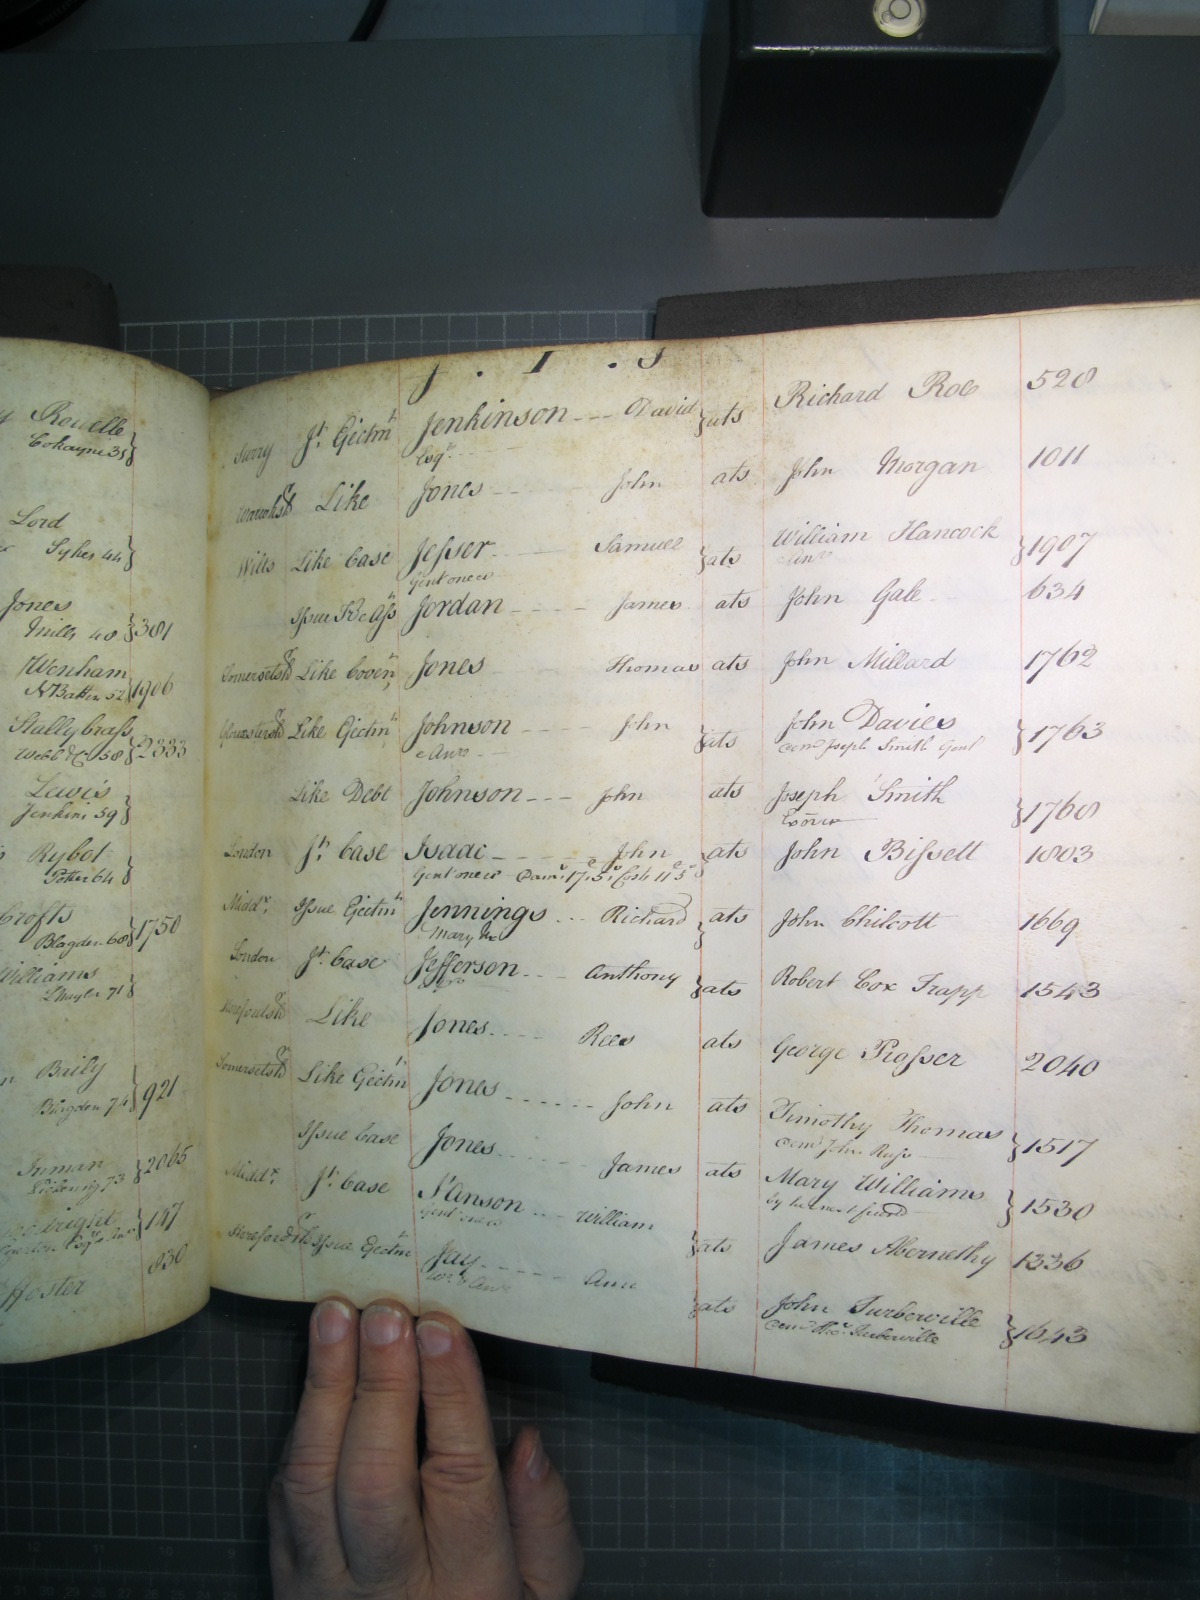 Rowelle
Cokayne 35
Lord
Sykes 44
Jones
Mills 48 } 381
Wenham
N Batten 52 } 1906
Stallybrass
Webb & Co 58 } 2333
Lewis
Jenkins 59
Rybot
Potter 64
Crofts
Blagden 68 } 1750
Williams
71
Baily
Blagden 74 } 921
Inman
73 } 2065
wright
147
ffoster 830
J. I. J
Surry Jt. Ejectmt Jenkinson David } ats Richard Roe 528
Esqr
Warwicksh Like Jones John ats John Morgan 1011
Wilts Like Case Jesser Samuel } ats William Hancock } 1907
Gent one &c
Issue Jordan James ats John Gale 634
Somersetsh Like Covent Jones Thomas ats John Millard 1762
Gloucestersh Like Ejectmt Johnson John } ats John Davies } 1763
& Anr dem Joseph Smith Gent
Like Debt Johnson John ats Joseph Smith } 1768
London Jt. Case Isaac John } ats John Bissett 1803
Gent one &c Dams 17. 5. Costs 11 5
Middx. Issue Ejectmt Jennings Richard } ats John Chilcott 1669
Mary Ux
London Jt. Case Jefferson Anthony } ats Robert Cox Trapp 1543
Herefordsh Like Jones Rees ats George Prosser 2040
Somersetsh Like Ejectmt Jones John ats Timothy Thomas } 1517
dem John Rufs
Issue Case Jones James ats Mary Williams } 1530
by her next friend
Middx. Jt. Case I'Anson William } ats James Abernethy 1336
Gent one &c
Herefordsh Issue Ejectmt Jay Ann } ats John Turberville } 1643
dem Thos. Turberville